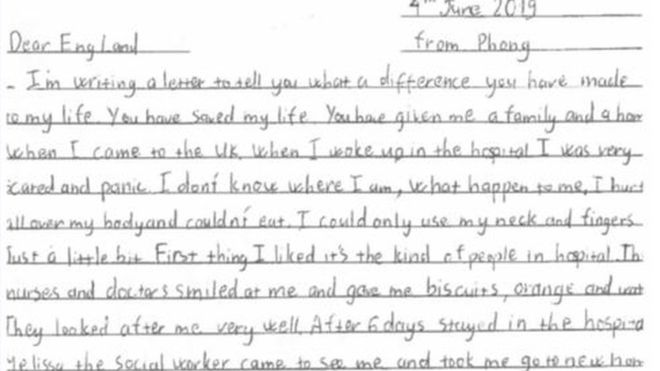 4th June 2019
Dear England
from Phong
- I'm writing a letter to tell you what a difference you have made
to my life. You have saved my life. You have given me a family and a hom
when I came to the UK. When I woke up in the hospital I was very
scared and panic. I don't know where I am, what happen to me, I hurt
all over my body and couldn't eat. I could only use my neck and fingers
Just a little bit First thing I liked it's the kind of people in hospital. Th
nurses and doctors smiled at me and gave me biscuits, orange and wat
They looked after me very well. After 6 days stayed in the hospita
Melissa the social worker came to see me and took me go to new hom